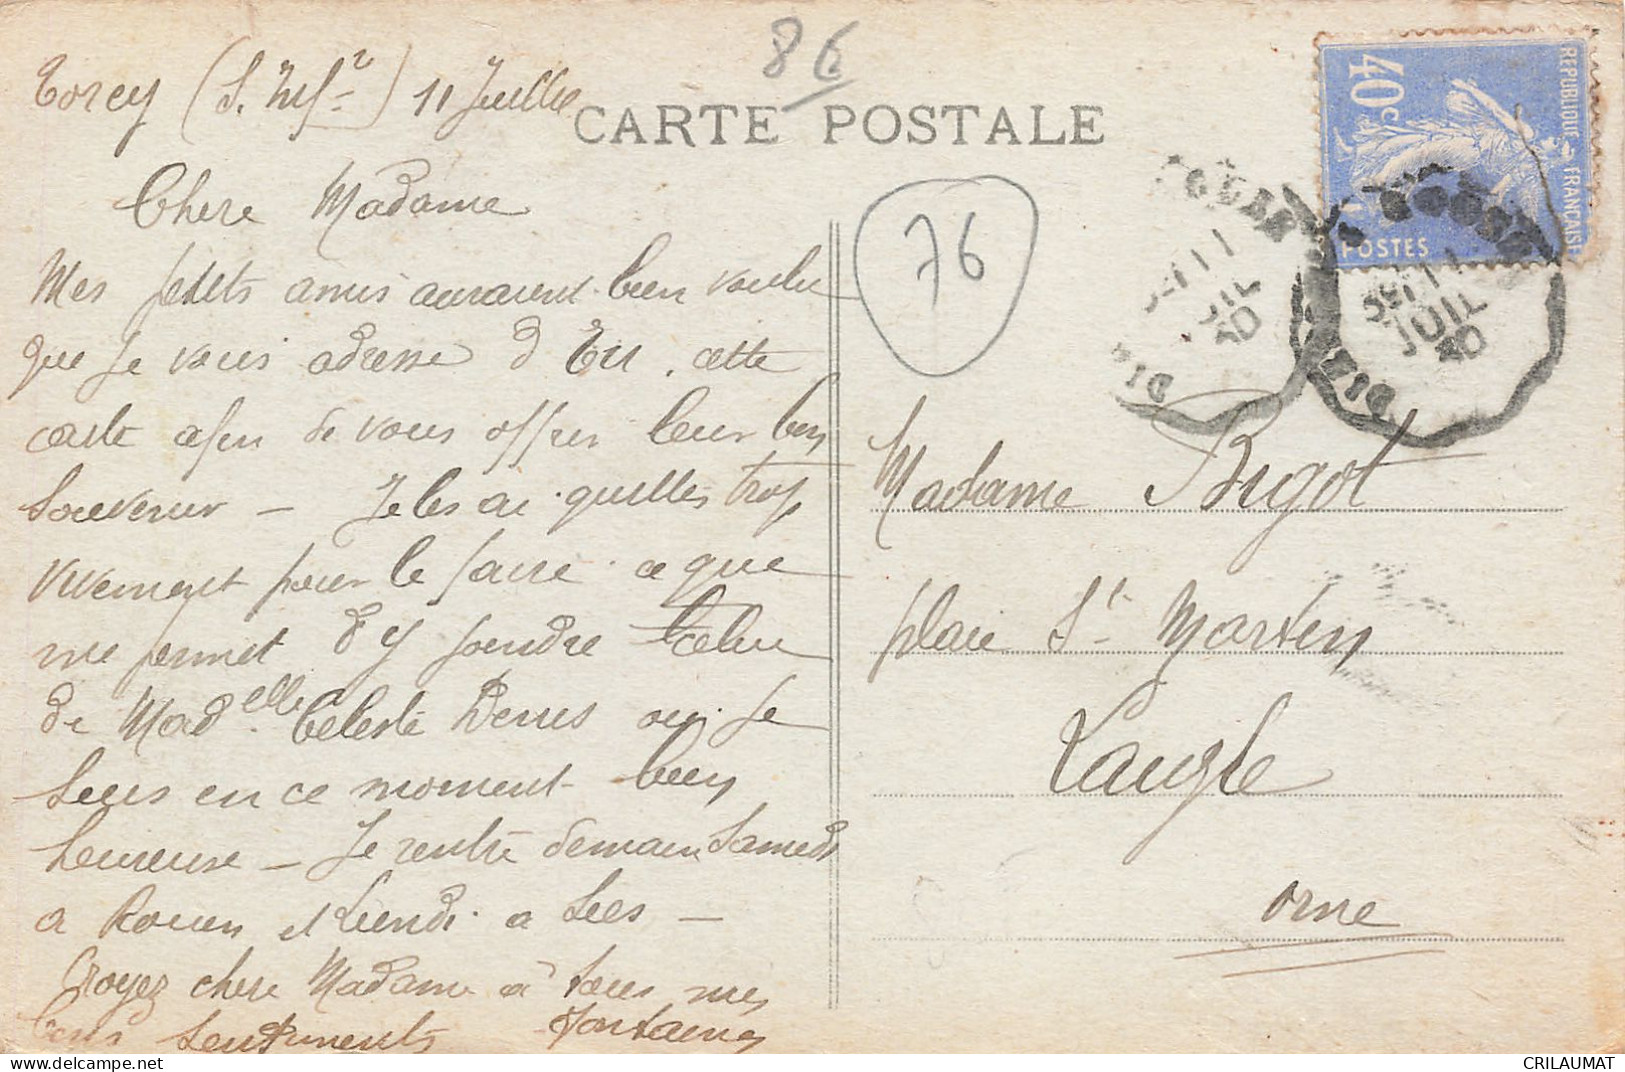 86
Torcy (S. Infre) 11 Juillet
CARTE POSTALE
Chere Madame
Mes petits amis auraient bien voulu
que je vous adresse d'Eu, cette
carte afin de vous offrir leur bon
Souvenir – Je les ai quittés trop
vivement pour le faire. ce que
me permet d'y joindre celui
de Madelle Céleste Denis où je
suis en ce moment bien
heureuse – Je rentre demain Samedi
a Rouen et Lundi a Sées –
Croyez chere Madame à tous mes
bons sentiments Fontaine
76
40c
REPUBLIQUE FRANÇAISE
POSTES
11
JUIL
30
11
JUIL
30
Madame Bigot
place St Martin
Laigle
Orne
delcampe.net
CRILAUMAT